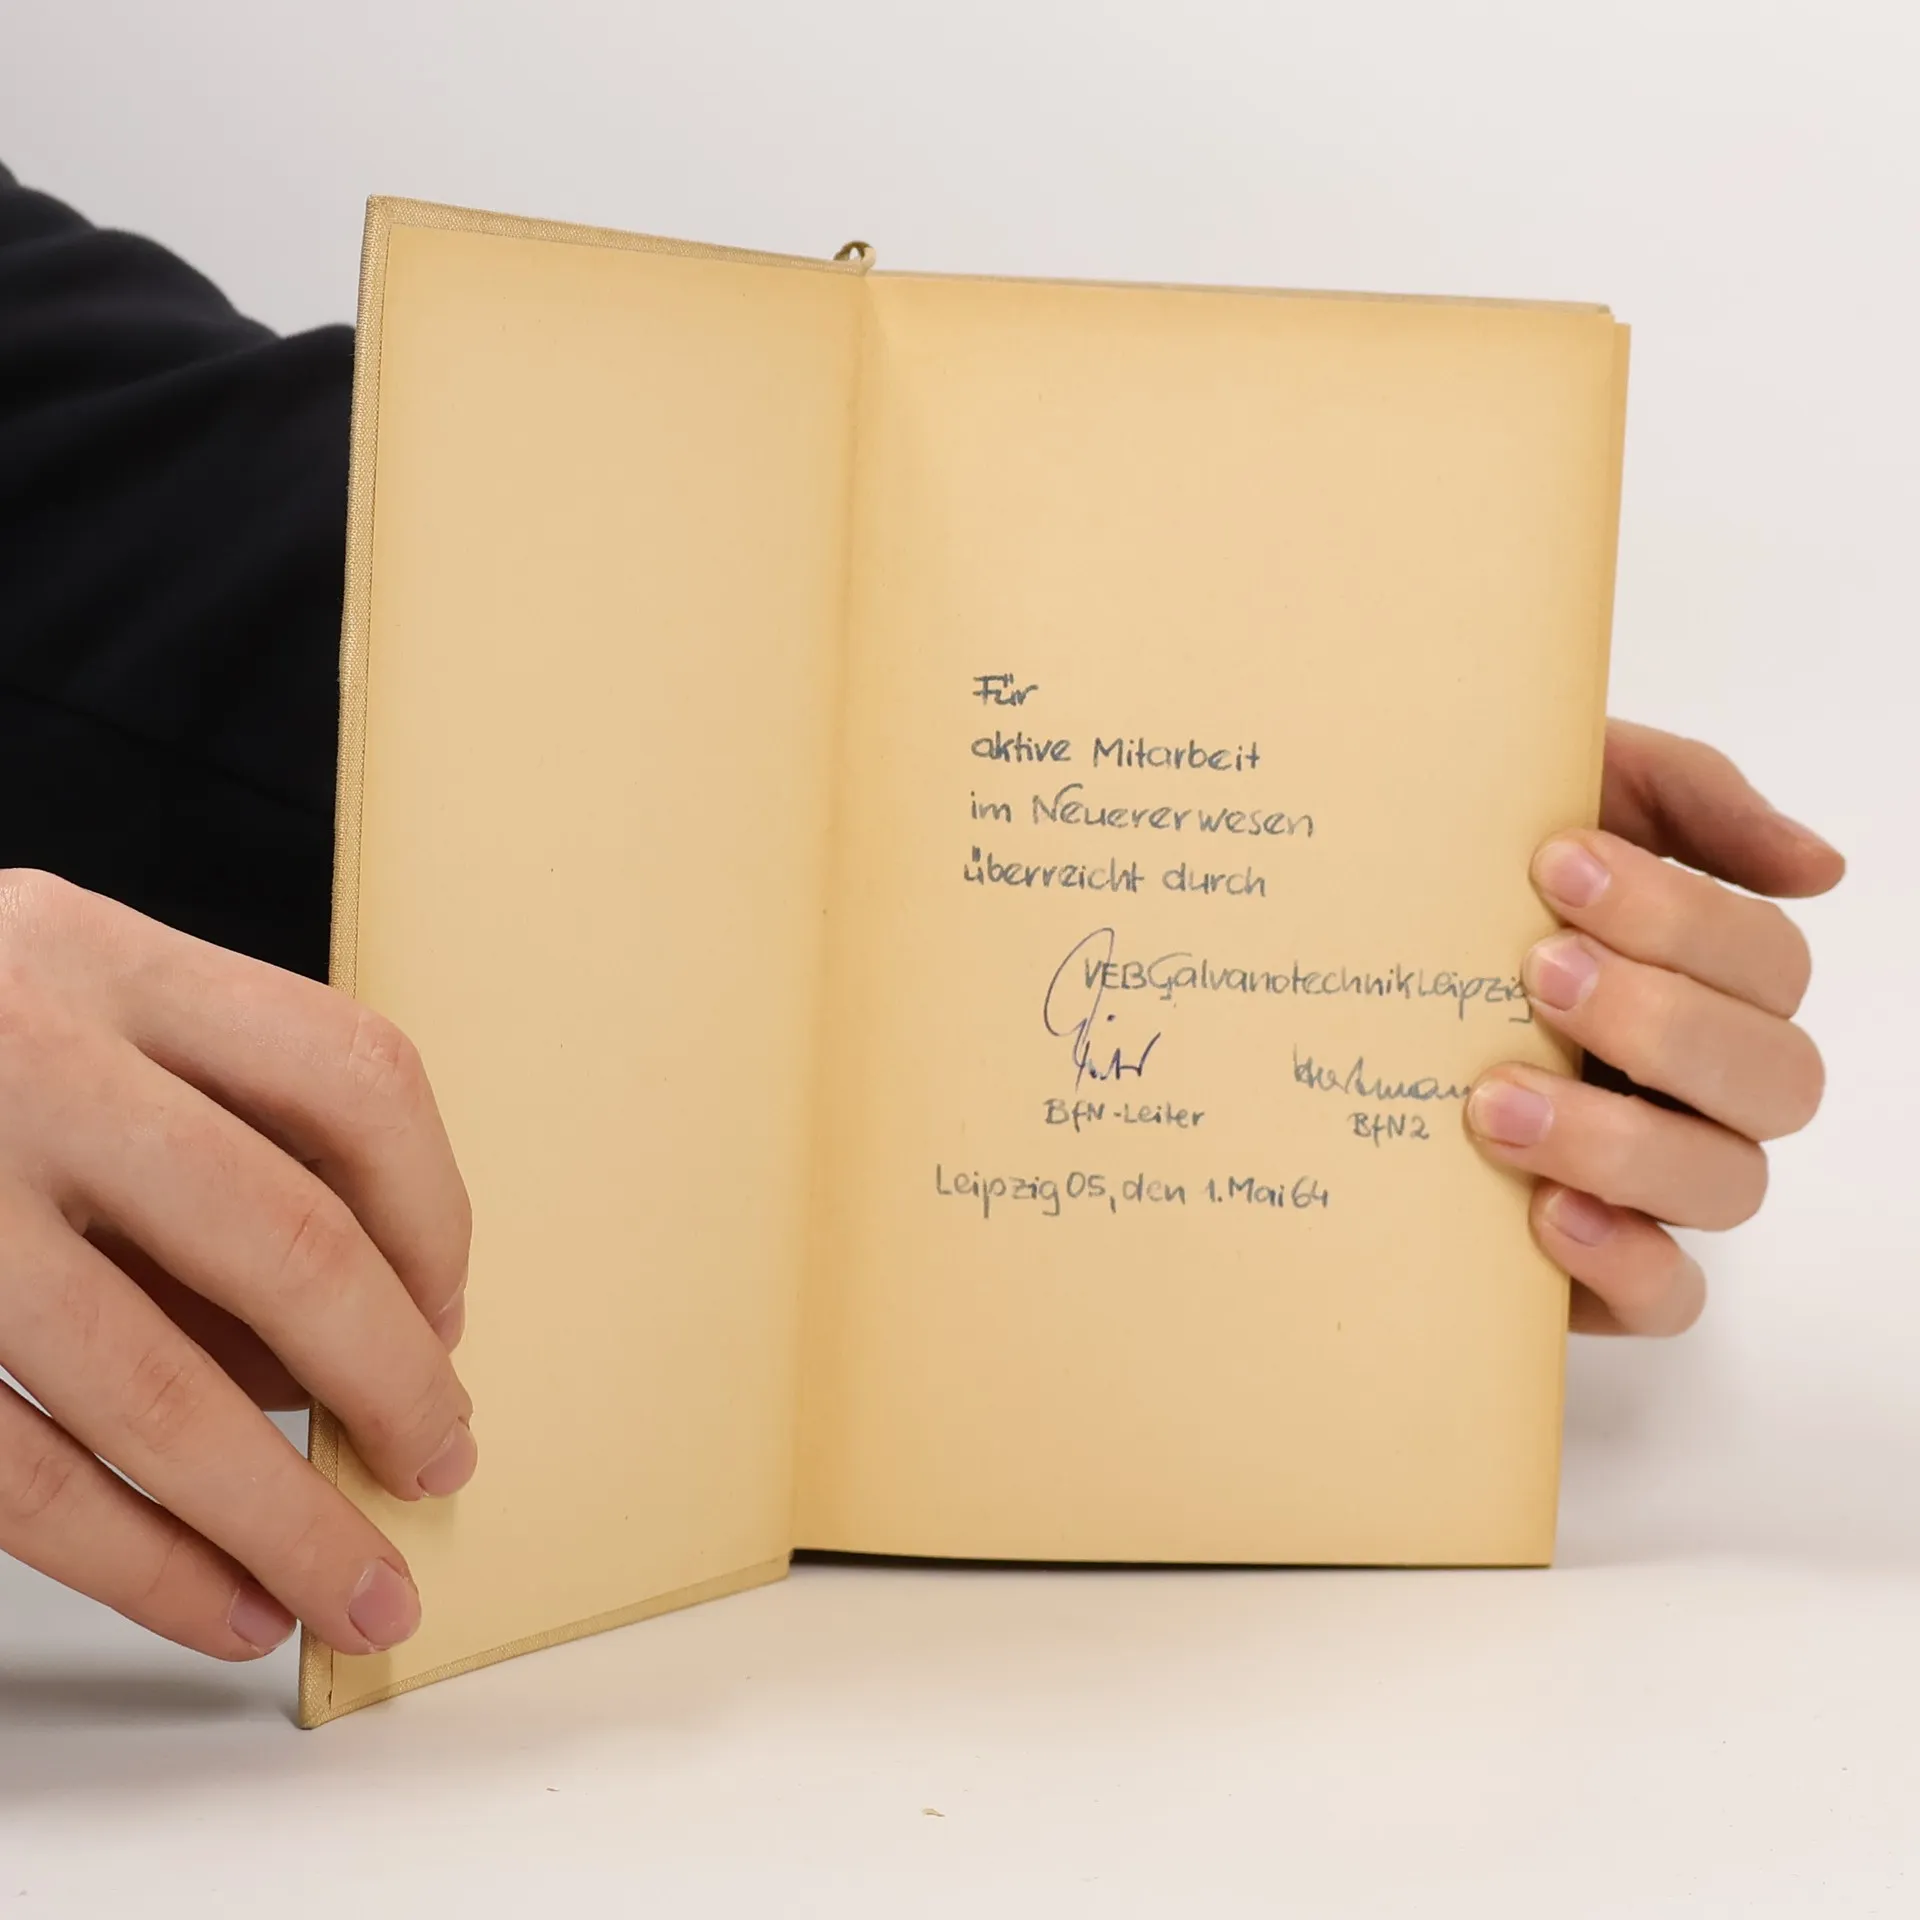 Für
aktive Mitarbeit
im Neuererwesen
überreicht durch
VEB Galvanotechnik Leipzig
BfN-Leiter
BfN2
Leipzig 05, den 1. Mai 64